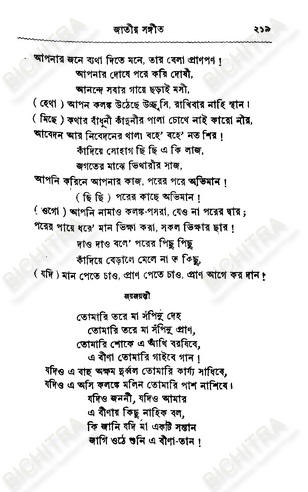 জাতীয় সঙ্গীত ২১৯
আপনার জনে ব্যথা দিতে মনে, তার বেলা প্রাণপণ!
আপনার দোষে পরে করি দোষী,
আনন্দে সবার গায়ে ছড়াই মসী,
( হেথা ) আপন কলঙ্ক উঠেছে উচ্ছ্বসি, রাখিবার নাহি স্থান।
( মিছে ) কথার বাঁধুনী কাঁদুনীর পালা চোখে নাই কারো নীর,
আবেদন আর নিবেদনের থালা বহে' বহে' নত শির!
কাঁদিয়ে সোহাগ ছি ছি এ কি লাজ,
জগতের মাঝে ভিখারীর সাজ,
আপনি করিনে আপনার কাজ, পরের পরে অভিমান!
( ছি ছি ) পরের কাছে অভিমান!
( ওগো ) আপনি নামাও কলঙ্ক-পসরা, যেও না পরের দ্বার;
পরের পায়ে ধরে' মান ভিক্ষা করা, সকল ভিক্ষার ছার!
দাও দাও বলে' পরের পিছু পিছু
কাঁদিয়ে বেড়ালে মেলে না ত কিছু,
( যদি ) মান পেতে চাও, প্রাণ পেতে চাও, প্রাণ আগে কর দান!
জয়জয়ন্তী
তোমারি তরে মা সঁপিনু দেহ
তোমারি তরে মা সঁপিনু প্রাণ,
তোমারি শোকে এ আঁখি বরষিবে,
এ বীণা তোমারি গাইবে গান!
যদিও এ বাহু অক্ষম দুর্ব্বল তোমারি কার্য্য সাধিবে,
যদিও এ অসি কলঙ্কে মলিন তোমারি পাশ নাশিবে।
যদিও জননী, যদিও আমার
এ বীণায় কিছু নাহিক বল,
কি জানি যদি মা একটি সন্তান
জাগি ওঠে শুনি এ বীণা-তান!
BICHITRA